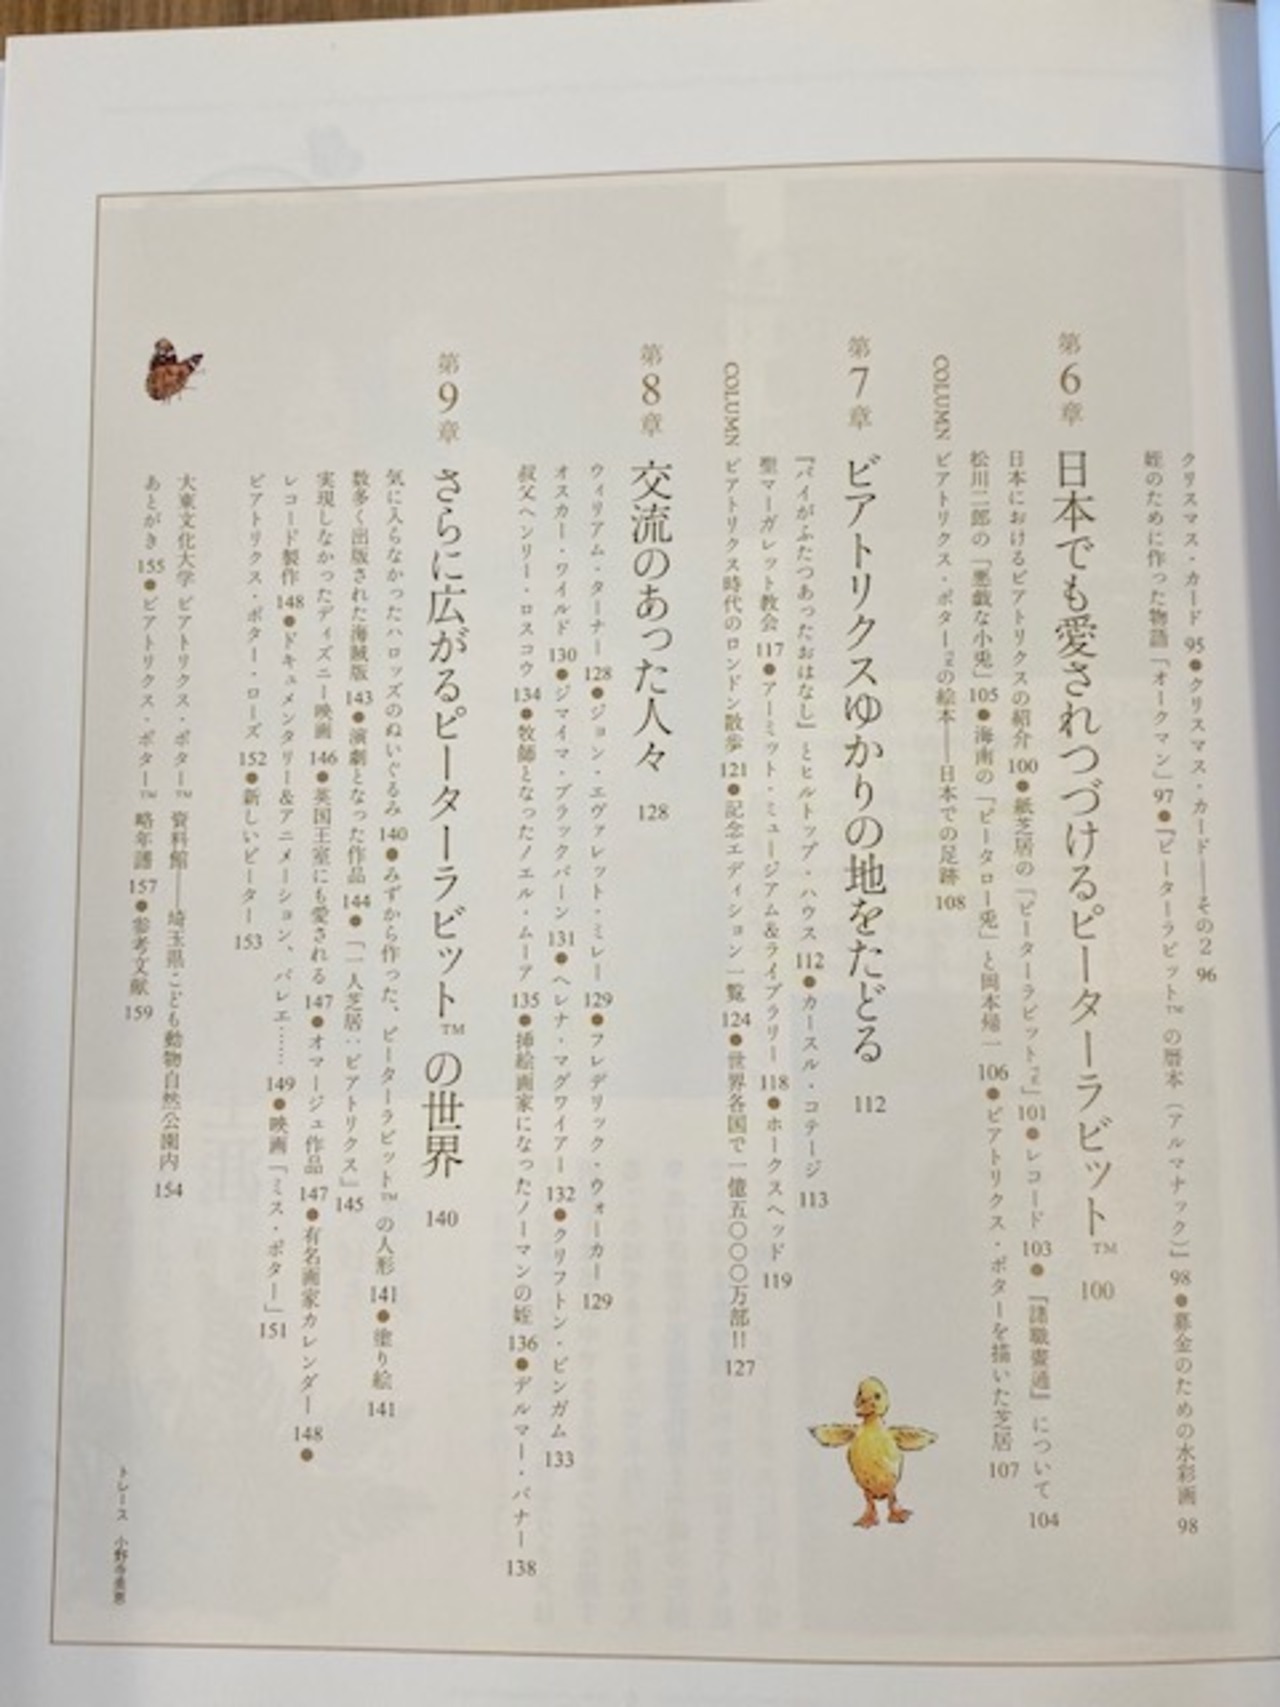 クリスマス・カード 95●クリスマス・カード――その2 96
姪のために作った物語「オークマン」97●『ピーターラビット™の暦本(アルマナック)』98●募金のための水彩画 98
第6章 日本でも愛されつづけるピーターラビット™ 100
日本におけるビアトリクスの紹介 100●紙芝居の『ピーターラビット™』101●レコード 103●『諸職畫通』について 104
松川二郎の「悪戯な小兎」105●海南の「ピータロー兎」と岡本帰一 106●ビアトリクス・ポターを描いた芝居 107
COLUMN ビアトリクス・ポター™の絵本――日本での足跡 108
第7章 ビアトリクスゆかりの地をたどる 112
『パイがふたつあったおはなし』とヒルトップ・ハウス 112●カースル・コテージ 113
聖マーガレット教会 117●アーミット・ミュージアム&ライブラリー 118●ホークスヘッド 119
COLUMN ビアトリクス時代のロンドン散歩 121●記念エディション一覧 124●世界各国で一億五〇〇〇万部!! 127
第8章 交流のあった人々 128
ウィリアム・ターナー 128●ジョン・エヴァレット・ミレー 129●フレデリック・ウォーカー 129
オスカー・ワイルド 130●ジマイマ・ブラックバーン 131●ヘレナ・マグワイアー 132●クリフトン・ビンガム 133
叔父ヘンリー・ロスコウ 134●牧師となったノエル・ムーア 135●挿絵画家になったノーマンの姪 136●デルマー・バナー 138
第9章 さらに広がるピーターラビット™の世界 140
気に入らなかったハロッズのぬいぐるみ 140●みずから作った、ピーターラビット™の人形 141●塗り絵 141
数多く出版された海賊版 143●演劇となった作品 144●「一人芝居：ビアトリクス」145
実現しなかったディズニー映画 146●英国王室にも愛される 147●オマージュ作品 147●有名画家カレンダー 148●
レコード製作 148●ドキュメンタリー&アニメーション、バレエ…… 149●映画「ミス・ポター」151
ビアトリクス・ポター・ローズ 152●新しいピーター 153
大東文化大学 ビアトリクス・ポター™ 資料館――埼玉県こども動物自然公園内 154
あとがき 155●ビアトリクス・ポター™ 略年譜 157●参考文献 159
トレース 小野寺美恵